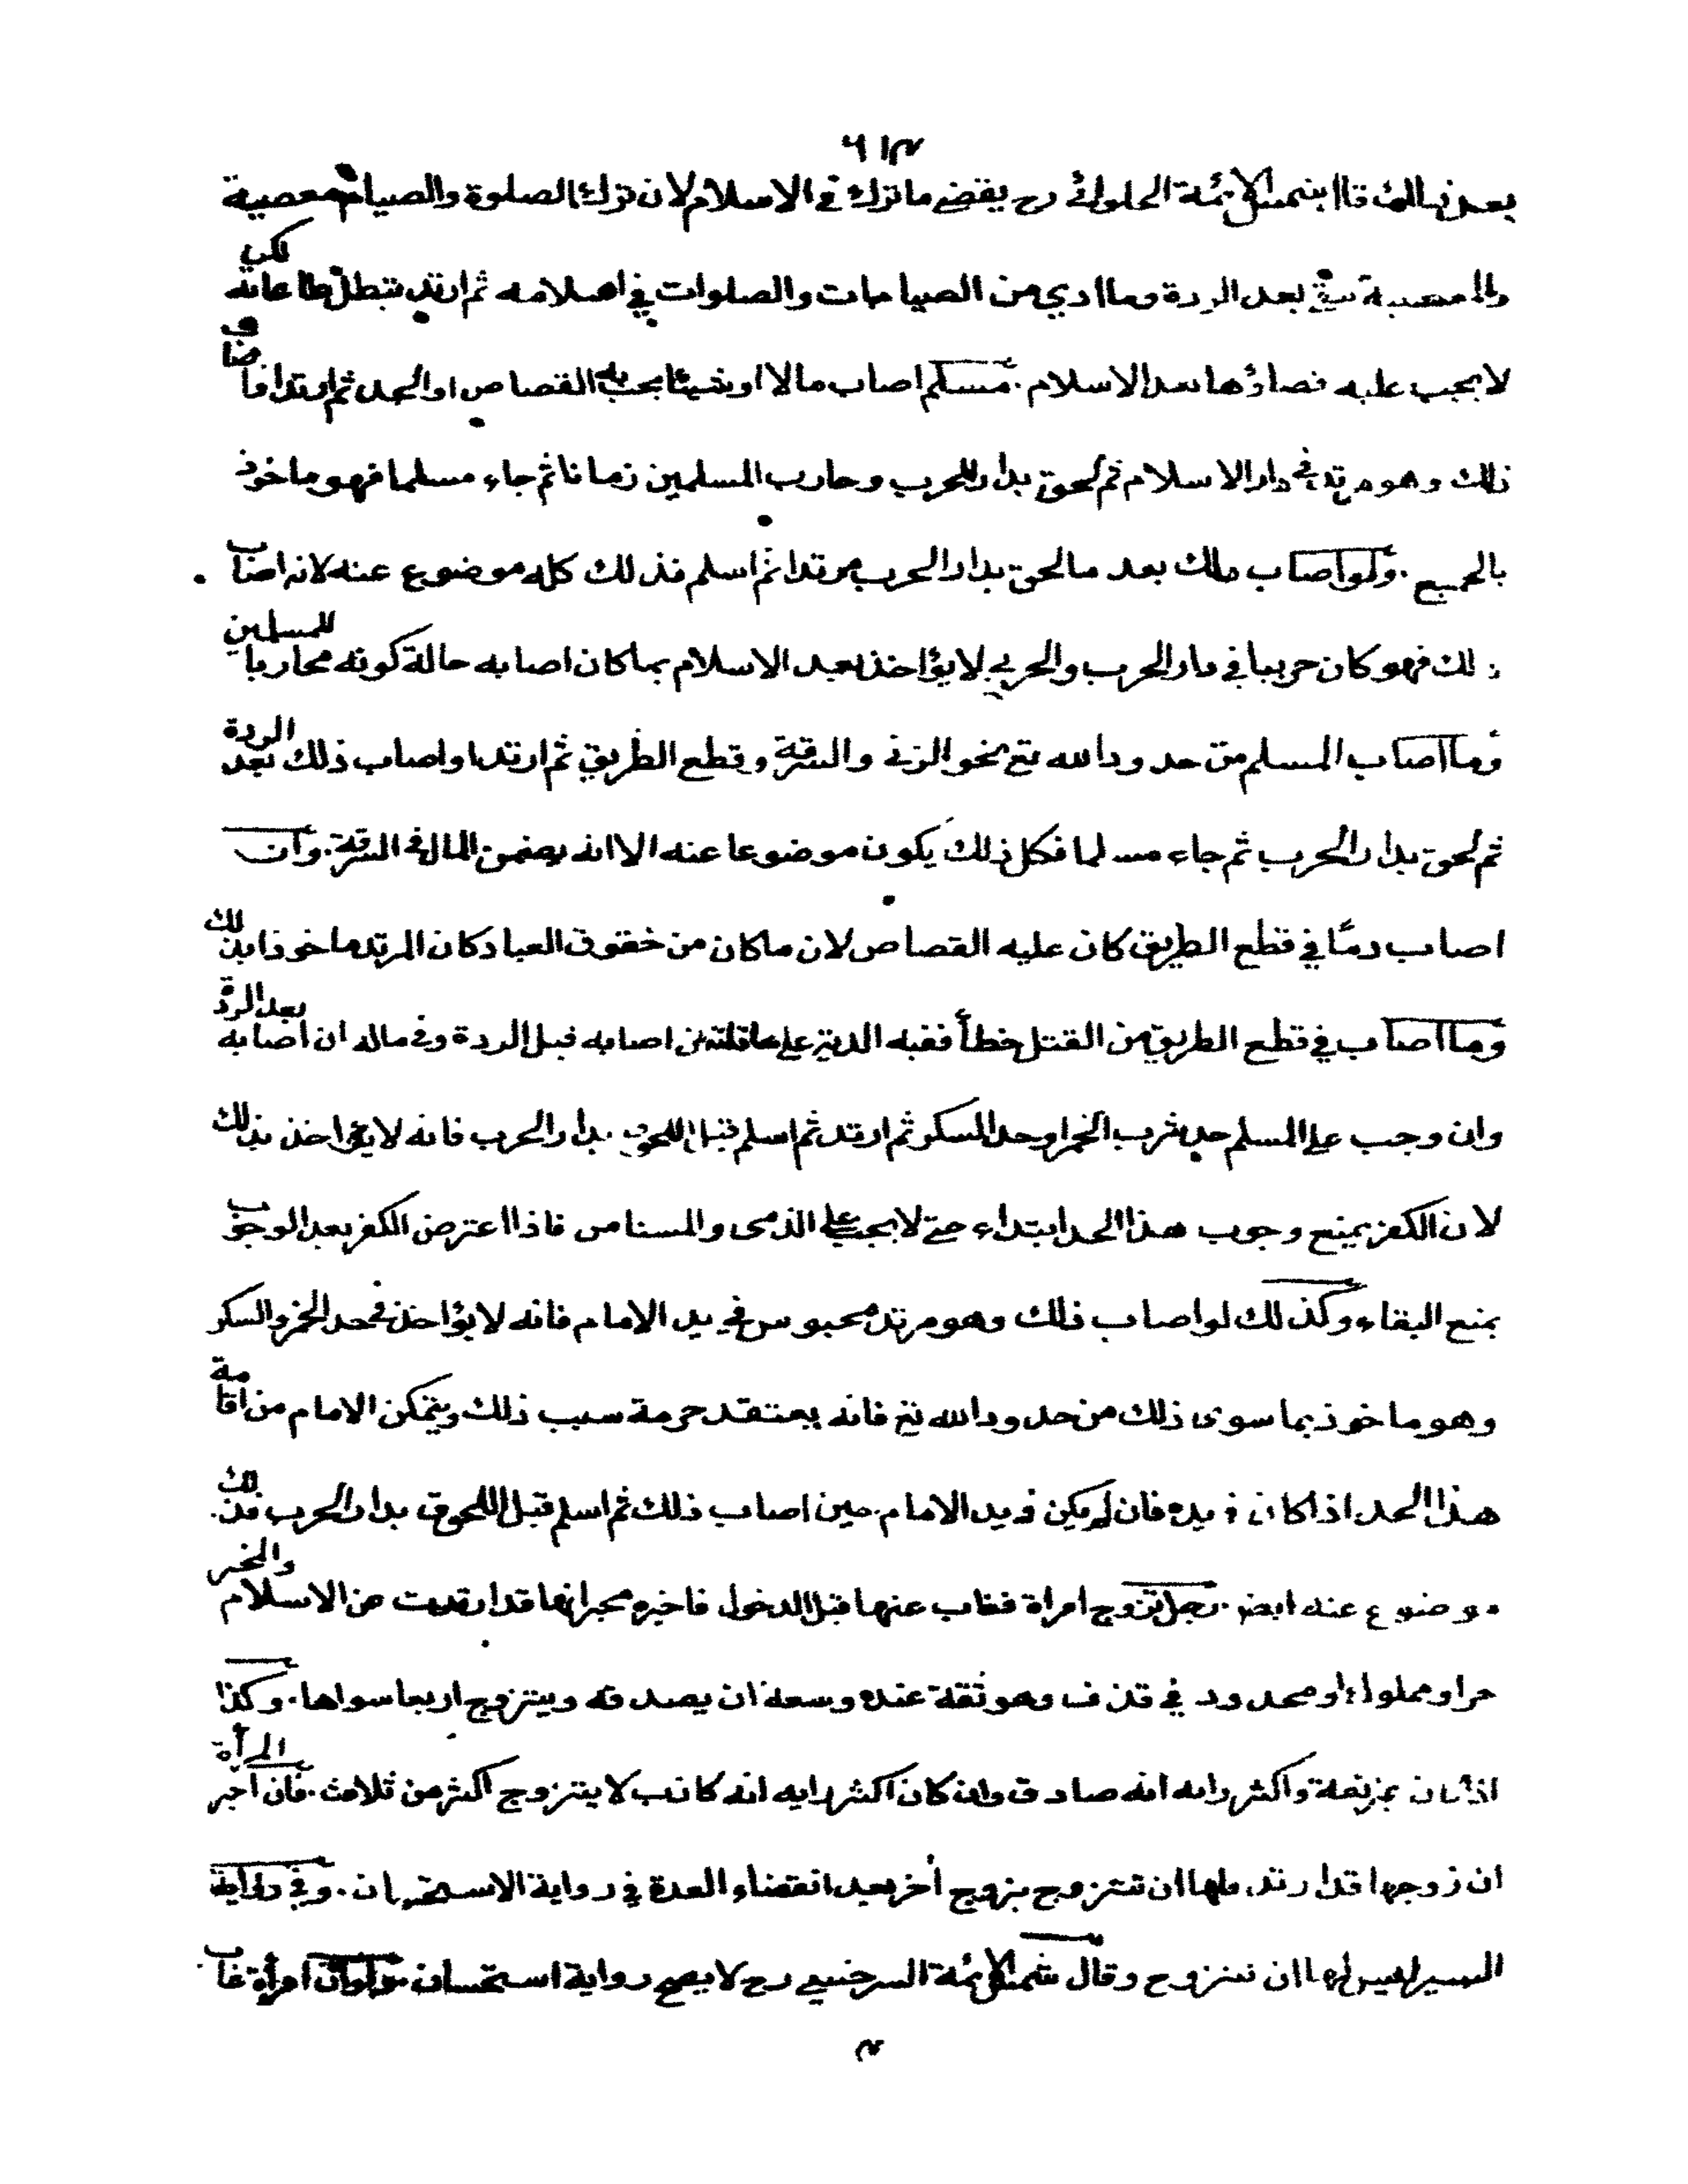 ٦١٣
بعد ذلك قال شمس الائمة الحلوائى رح يقضى ما ترك فى الاسلام لان ترك الصلوة والصيام معصية
والمعصية تبقى بعد الردة وما ادى من الصيامات والصلوات فى اسلامه ثم ارتد تبطل طاعاته لكن
لا يجب عليه قضاؤها بعد الاسلام . مسلم اصاب مالا او شيئا يجب به القصاص او الحد ثم ارتد او اصاب
ذلك وهو مرتد فى دار الاسلام ثم لحق بدار الحرب وحارب المسلمين زمانا ثم جاء مسلما فهو ماخوذ
بالجميع . ولو اصاب ذلك بعد ما لحق بدار الحرب مرتدا ثم اسلم فذلك كله موضوع عنه لانه اصاب
ذلك فهو كان حربيا فى دار الحرب والحربى لا يؤاخذ بعد الاسلام بما كان اصابه حالة كونه محاربا للمسلمين
وما اصاب المسلم من حدود الله تع نحو الزنى والسرقة وقطع الطريق ثم ارتد او اصاب ذلك بعد الردة
ثم لحق بدار الحرب ثم جاء مسلما فكل ذلك يكون موضوعا عنه الا انه يضمن المال فى السرقة . وان
اصاب دمًا فى قطع الطريق كان عليه القصاص لان ما كان من حقوق العباد كان المرتد ماخوذا بذلك
وما اصاب فى قطع الطريق من القتل خطأ ففيه الدية على عاقلته ان اصابه قبل الردة وفى ماله ان اصابه بعد الردة
وان وجب على المسلم حد شرب الخمر او حد السكر ثم ارتد ثم اسلم قبل اللحوق بدار الحرب فانه لا يؤاخذ بذلك
لان الكفر يمنع وجوب هذا الحد ابتداء حتى لا يجب على الذمى والمستامن فاذا اعترض الكفر بعد الوجوب
يمنع البقاء وكذلك لو اصاب ذلك وهو مرتد محبوس فى يد الامام فانه لا يؤاخذ فى حد الخمر والسكر
وهو ماخوذ بما سوى ذلك من حدود الله تع فانه يعتقد حرمة سبب ذلك ويتمكن الامام من اقامة
هذا الحد اذا كان فى يده فان لم يكن فى يد الامام حين اصاب ذلك ثم اسلم قبل اللحوق بدار الحرب فذلك
موضوع عنه ايضا . رجل تزوج امراة فغاب عنها قبل الدخول فاخبره مخبر انها قد ارتدت عن الاسلام والمخبر
حر او مملوك او محدود فى قذف وهو ثقة عنده وسعه ان يصدقه ويتزوج اربعا سواها . وكذا
اذا كان غير ثقة واكثر رايه انه صادق وان كان اكثر رايه انه كاذب لا يتزوج اكثر من ثلاث . فان اخبر المرأة
ان زوجها قد ارتد فلها ان تتزوج بزوج أخر بعد انقضاء العدة فى رواية الاستحسان . وفى رواية
السير ليس لها ان تتزوج وقال شمس الائمة السرخسى رح لا يصح رواية استحسان ولو ان امرأة غاب